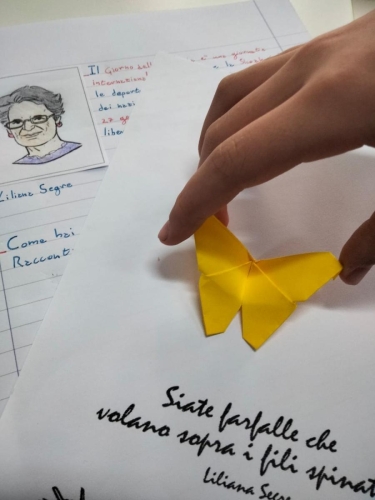 Il Giorno
è una giornata
internazional
e la
le deport
dei nazi
27 ge
liber
Liliana Segre
Come hai
Raccont
Siate farfalle che
volano sopra i fili spinat
Liliana Segre